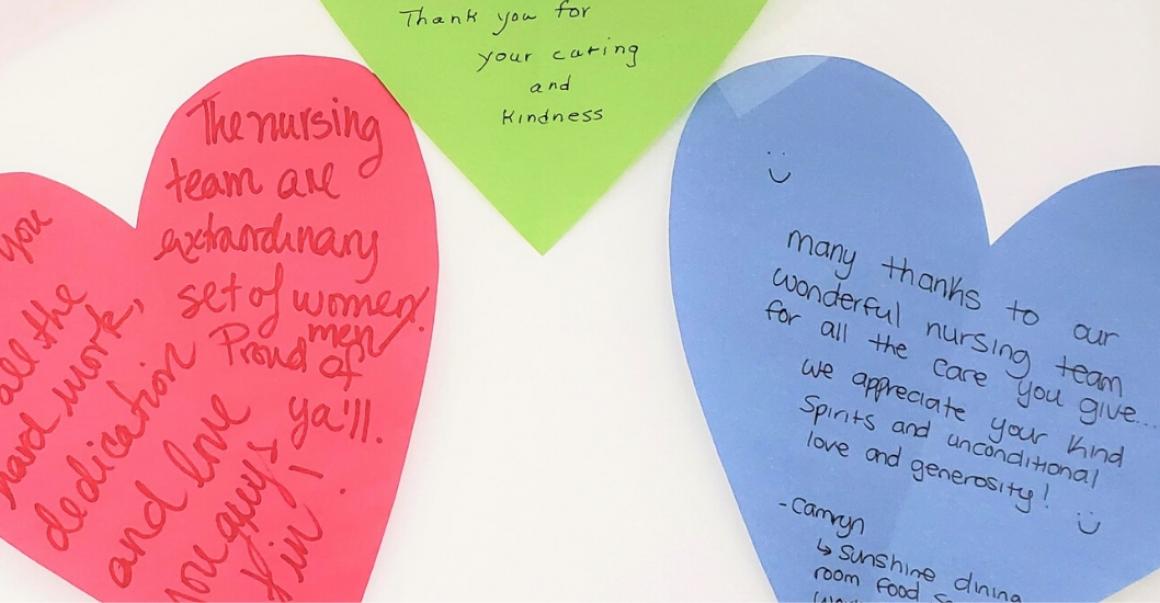 Thank you for
your caring
and
kindness
you
all the
hard work,
dedication
and love
you guys
The nursing
team are
extraordinary
set of women/
men
Proud of
ya'll.
many thanks to our
wonderful nursing team
for all the care you give...
we appreciate your kind
spirits and unconditional
love and generosity!
-Camryn
↳ sunshine dining
room food